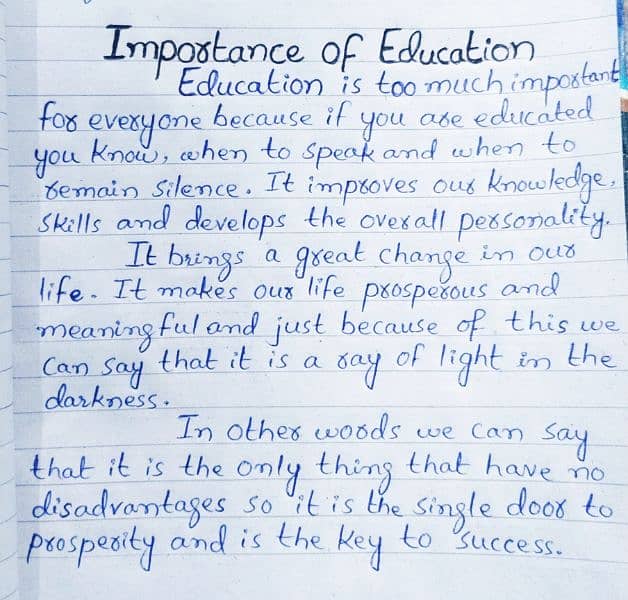 Importance of Education
Education is too much important
for everyone because if you are educated
you know, when to speak and when to
remain silence. It improves our knowledge,
skills and develops the overall personality.
It brings a great change in our
life. It makes our life prosperous and
meaningful and just because of this we
can say that it is a ray of light in the
darkness.
In other words we can say
that it is the only thing that have no
disadvantages so it is the single door to
prosperity and is the key to success.